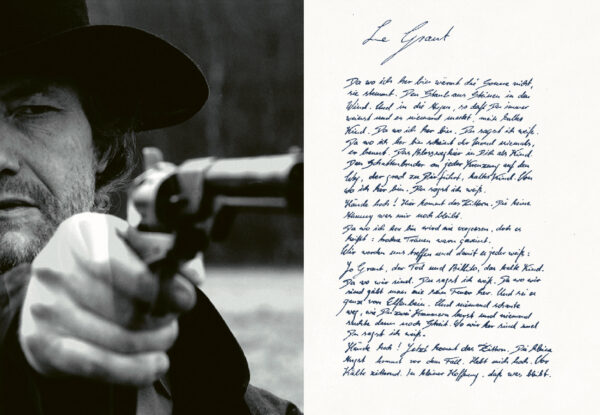 Le Grant
Da wo ich her bin wärmt die Sonne nicht,
sie
Den Staub aus Steinen in den
Wind. Und in die Augen, so daß Du immer
weinst und es niemand merkt, mein kaltes
Kind. Da wo ich her bin. Du sagst ich weiß.
Da wo ich her bin scheint der Mond niemals,
er brennt. Das in Dich als Kind
Den Schattenbruder an jeder Kreuzung auf den
Weg, der grad zu Dir führt, kaltes Kind. Von
wo ich her bin. Du sagst ich weiß.
Hände hoch! Hier kommt das Zittern. Die keine
Ahnung was mir noch bleibt.
Da wo ich her bin wird nie vergessen, daß es
heißt: keine Tränen wenn geweint.
Wir werden uns treffen und damit es jeder weiß:
Jo Grant, der Tod und das kalte Kind.
Da wo wir sind. Du sagst ich weiß. Da wo wir
sind gibt uns nie kein Feuer her. Und sei es
ganz von Elfenbein. Und niemand schaute
weg, wie Du zwei Hammern und niemand
dann noch Wo wir her sind und
Du sagst ich weiß.
Hände hoch! Jetzt kommt das Zittern. Die kleine
Angst kommt vor dem Fall. Hebt mich hoch. Vor
Kälte zitternd. In kleiner Hoffnung, daß was bleibt.